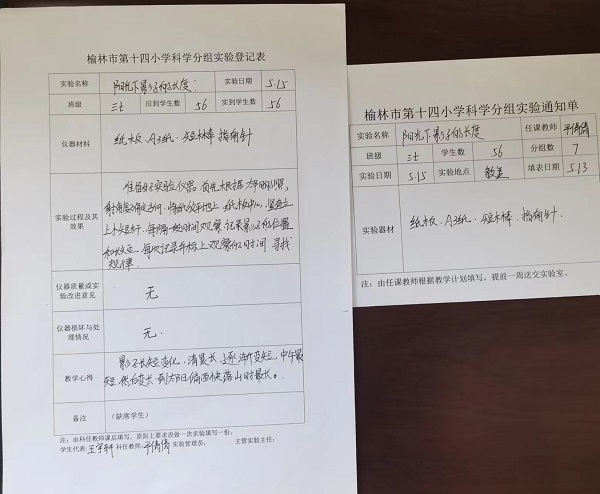 榆林市第十四小学科学分组实验登记表
实验名称 阳光下影子的长度 实验日期 5.15
班级 三七 应到学生数 56 实到学生数 56
仪器材料 纸板、A3纸、短木棒 指南针
实验过程及其效果
准备好实验仪器 首先根据太阳照
射角度确定方向 将纸放在地上 纸板中心
上木短杆 每隔一段时间观察 记录影子的位置
和长短 每次记录并标上观察的时间 寻找
规律
仪器质量或实验改进意见 无
仪器损坏与处理情况 无.
教学心得
影子长短变化、清晨长、逐渐变短 中午最
短 然后变长 到太阳偏西快落山时最长。
备注 (缺席学生)
注:由科任教师课后填写,原则上要求没做一次实验填写一份。
学生代表: 王宇轩 科任教师: 于倩倩 实验管理员: 主管实验主任:
榆林市第十四小学科学分组实验通知单
实验名称 阳光下影子的长度 任课教师 于倩倩
班级 三七 学生数 56 分组数 7
实验日期 5.15 实验地点 教室 填表日期 5.13
实验器材 纸板、A3纸、短木棒、指南针.
注:由任课教师根据教学计划填写,提前一周送交实验室。